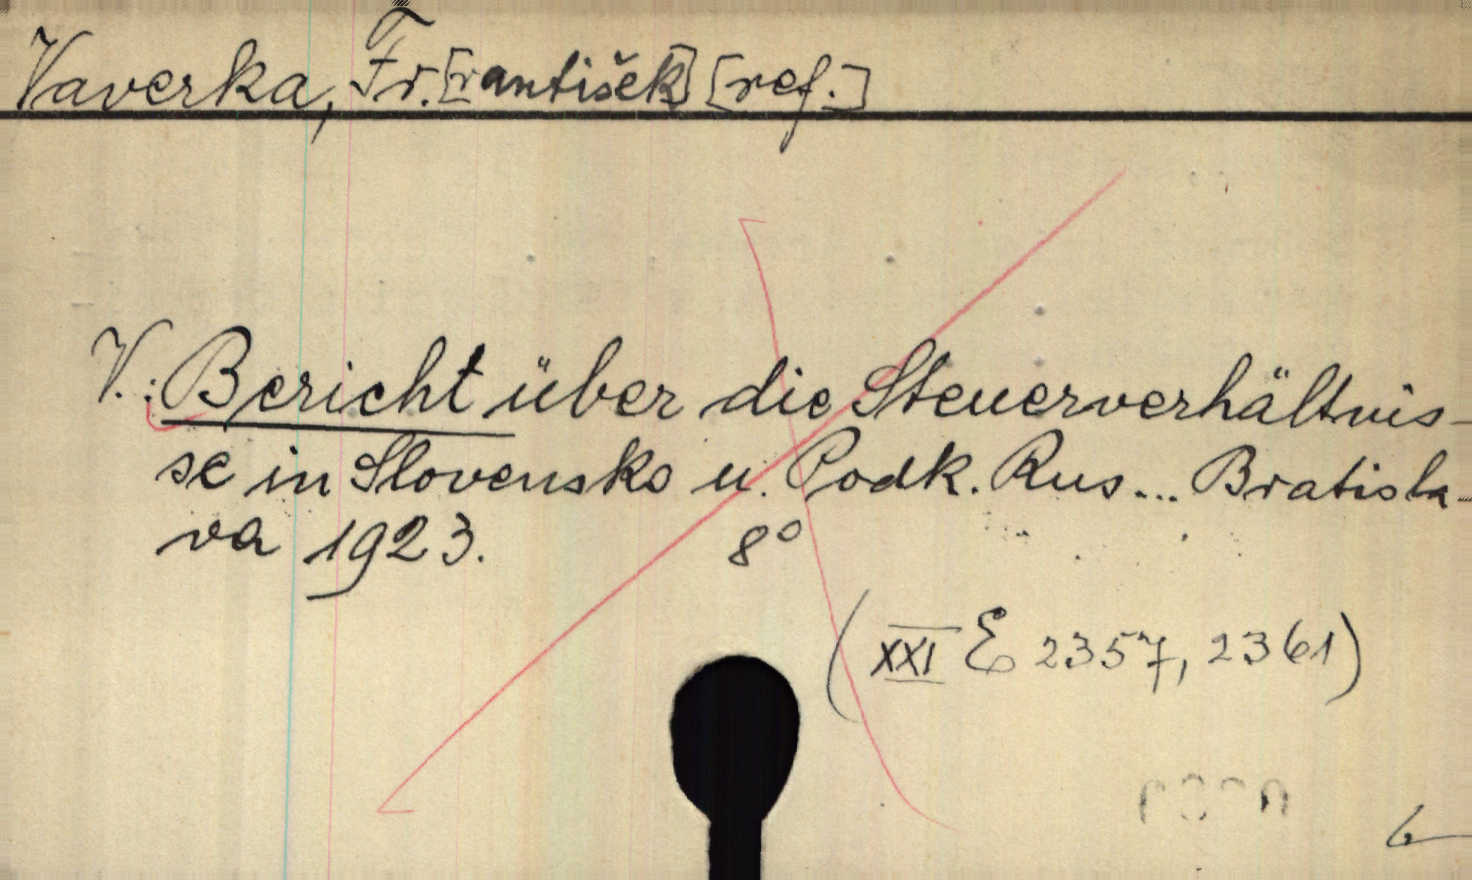 Vaverka, Fr.[rantišek] [ref.]
V.: Bericht über die Steuerverhältnis-
se in Slovensko u. Podk. Rus... Bratisla-
va 1923. 8°
(XXI E 2357, 2361)